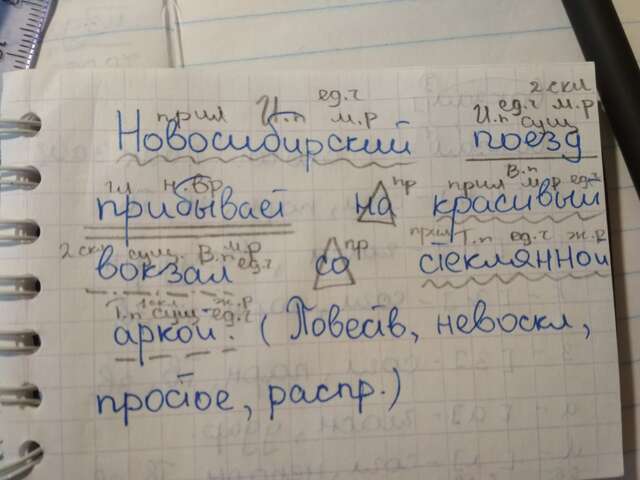 2 скл
прил И.п ед.ч м.р И.п ед.ч м.р сущ
Новосибирский поезд
гл н.вр пр прил В.п м.р ед.ч
прибывает на красивый
2 скл сущ. В.п м.р ед.ч пр прил Т.п ед.ч ж.р
вокзал со стеклянной
Т.п 1 скл. сущ ж.р ед.ч
аркой. (Повеств, невоскл,
простое, распр.)